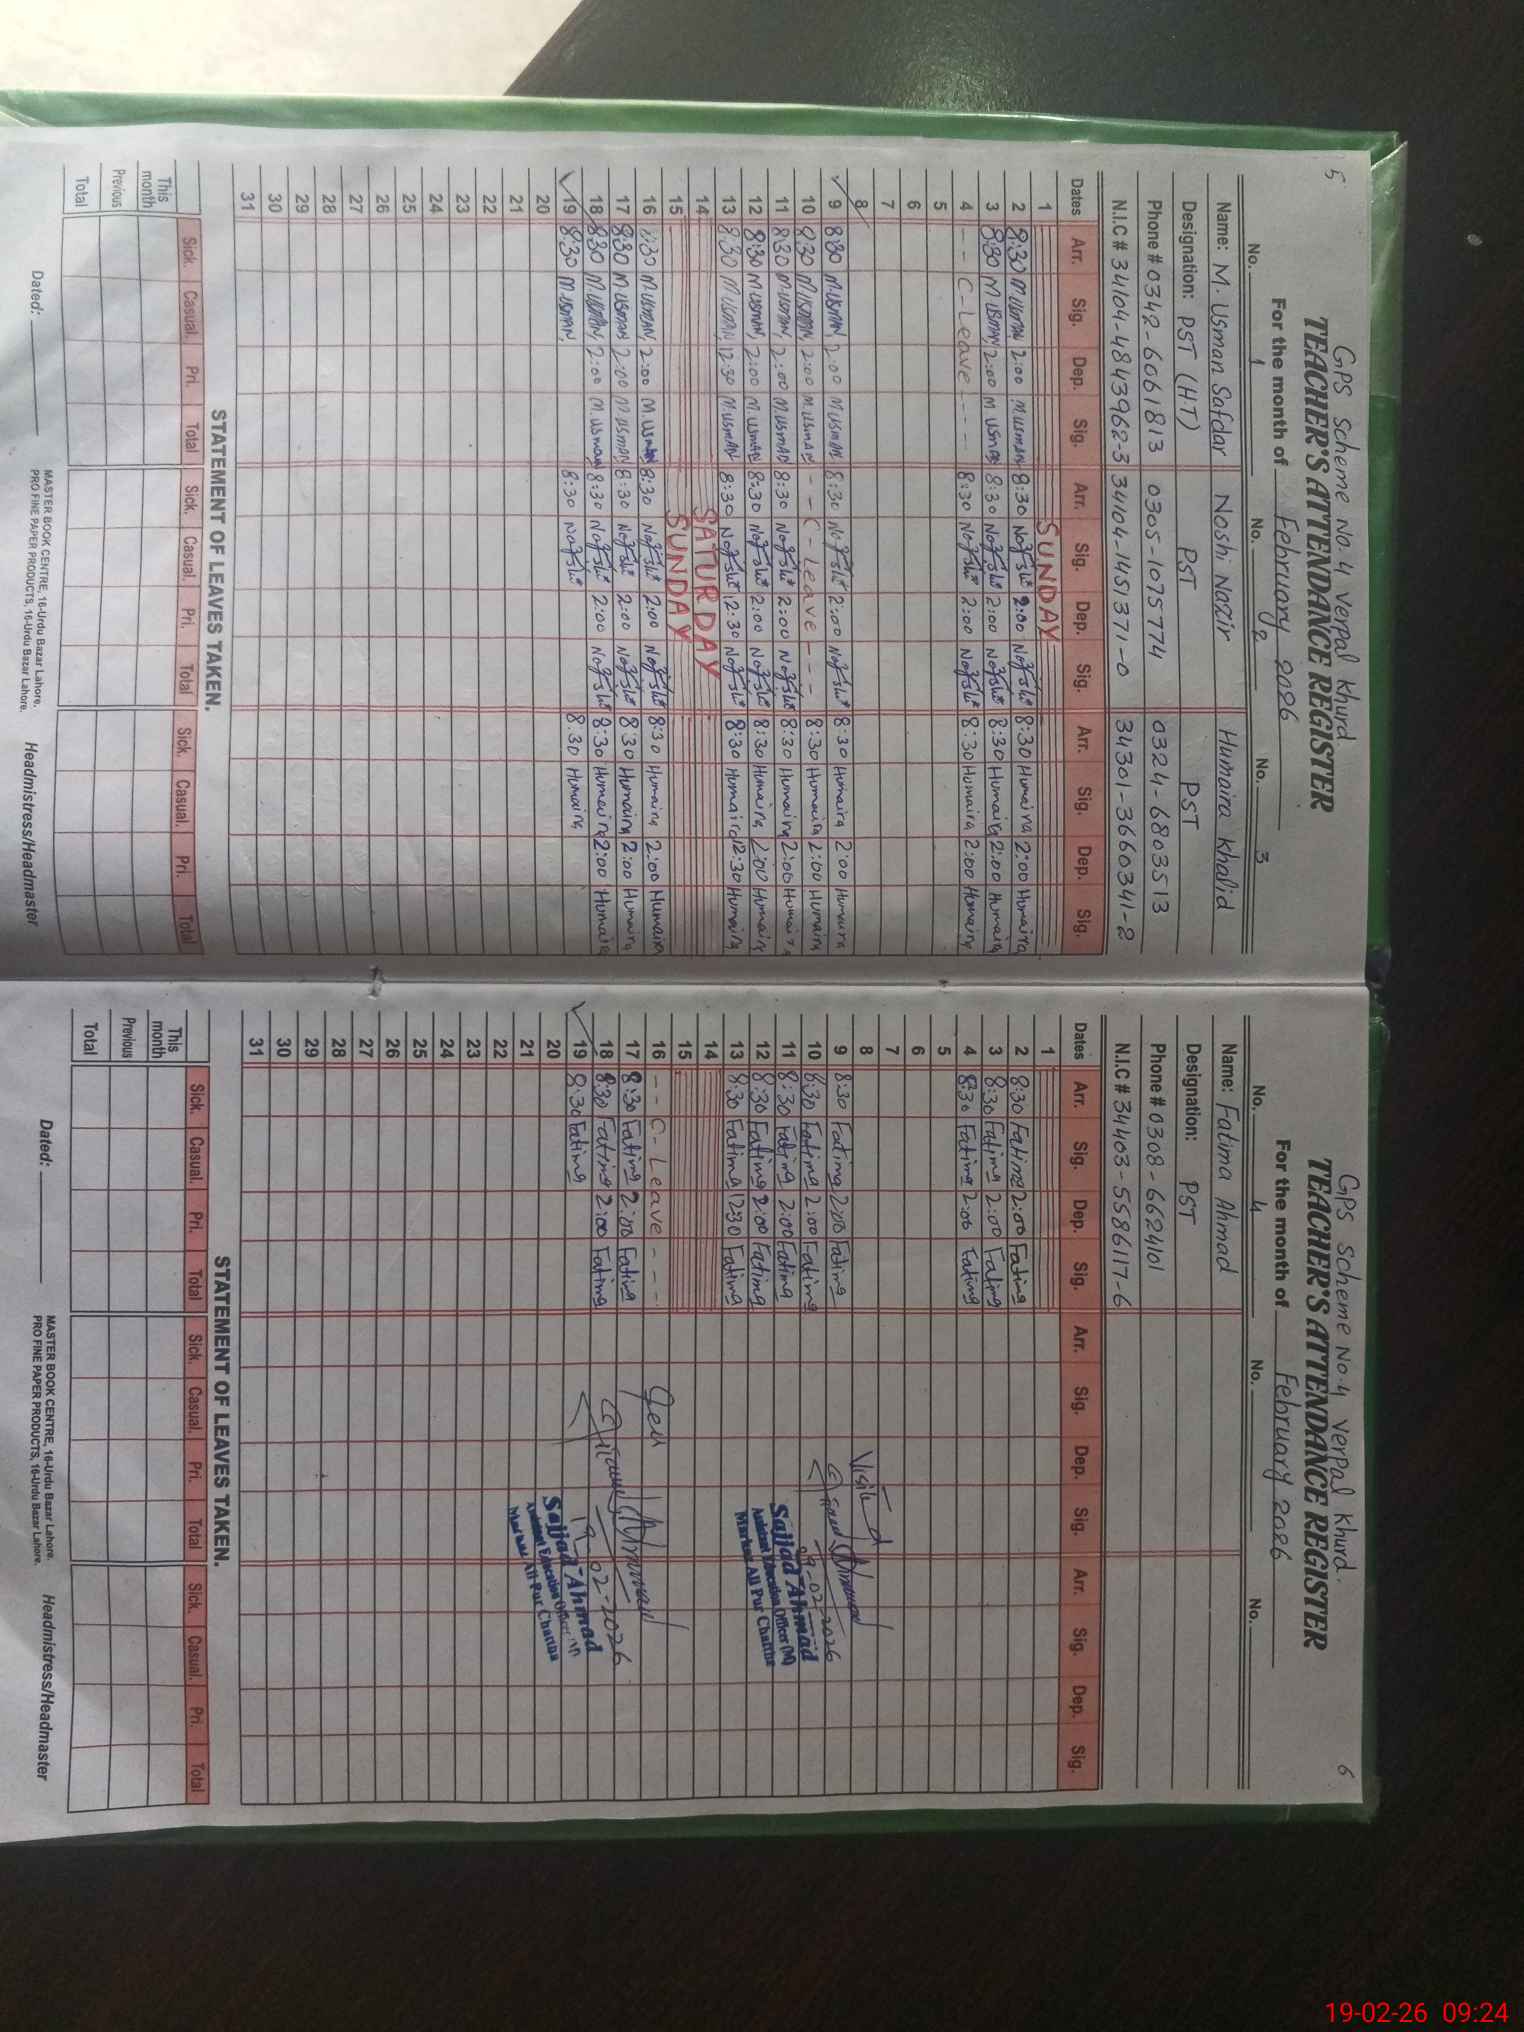 5
GPS Scheme No. 4 Verpal Khurd
TEACHER'S ATTENDANCE REGISTER
For the month of February 2026
No. 1 No. 2 No. 3
Name: M. Usman Safdar Noshi Nazir Humaira Khalid
Designation: PST (HT) PST PST
Phone # 0342-6061813 0305-1075774 0324-6803513
N.I.C # 34104-4843962-3 34104-1451371-0 34301-3660341-2
Dates Arr. Sig. Dep. Sig. Arr. Sig. Dep. Sig. Arr. Sig. Dep. Sig.
1 SUNDAY
2 8:30 M.USMAN 2:00 M.USMAN 8:30 2:00 8:30 Humaira 2:00 Humaira
3 8:30 M.USMAN 2:00 M.USMAN 8:30 2:00 8:30 Humaira 2:00 Humaira
4 --- C-Leave ---- 8:30 2:00 8:30 Humaira 2:00 Humaira
5
6
7
8
9 8:30 M.USMAN 2:00 M.USMAN 8:30 2:00 8:30 Humaira 2:00 Humaira
10 8:30 M.USMAN 2:00 M.USMAN --- C-Leave --- 8:30 Humaira 2:00 Humaira
11 8:30 M.USMAN 2:00 M.USMAN 8:30 2:00 8:30 Humaira 2:00 Humaira
12 8:30 M.USMAN 2:00 M.USMAN 8:30 2:00 8:30 Humaira 2:00 Humaira
13 8:30 M.USMAN 12:30 M.USMAN 8:30 12:30 8:30 Humaira 12:30 Humaira
14 SATURDAY
15 SUNDAY
16 8:30 M.USMAN 2:00 M.Usman 8:30 2:00 8:30 Humaira 2:00 Humaira
17 8:30 M.USMAN 2:00 M.USMAN 8:30 2:00 8:30 Humaira 2:00 Humaira
18 8:30 M.USMAN 2:00 M.Usman 8:30 2:00 8:30 Humaira 2:00 Humaira
19 8:30 M.USMAN 8:30 8:30 Humaira
20
21
22
23
24
25
26
27
28
29
30
31
STATEMENT OF LEAVES TAKEN.
Sick. Casual. Pri. Total Sick. Casual. Pri. Total Sick. Casual. Pri. Total
This month
Previous
Total
Dated: MASTER BOOK CENTRE, 16-Urdu Bazar Lahore. Headmistress/Headmaster
PRO FINE PAPER PRODUCTS, 16-Urdu Bazar Lahore.
6
GPS Scheme No.4 Verpal Khurd.
TEACHER'S ATTENDANCE REGISTER
For the month of February 2026
No. 4 No. No.
Name: Fatima Ahmad
Designation: PST
Phone # 0308-6624101
N.I.C # 34403-5586117-6
Dates Arr. Sig. Dep. Sig. Arr. Sig. Dep. Sig. Arr. Sig. Dep. Sig.
1
2 8:30 Fatima 2:00 Fatima
3 8:30 Fatima 2:00 Fatima
4 8:30 Fatima 2:00 Fatima
5
6
7
8 Visited
9 8:30 Fatima 2:00 Fatima
09-02-2026
10 8:30 Fatima 2:00 Fatima
Sajjad Ahmad
11 8:30 Fatima 2:00 Fatima
Assistant Education Officer (M)
12 8:30 Fatima 2:00 Fatima
Markaz Ali Pur Chattha
13 8:30 Fatima 12:30 Fatima
14
15
16 --- C-Leave ---- Seen
17 8:30 Fatima 2:00 Fatima
18 8:30 Fatima 2:00 Fatima
19-02-2026
19 8:30 Fatima
Sajjad Ahmad
20
Assistant Education Officer (M)
21
Markaz Ali Pur Chattha
22
23
24
25
26
27
28
29
30
31
STATEMENT OF LEAVES TAKEN.
Sick. Casual. Pri. Total Sick. Casual. Pri. Total Sick. Casual. Pri. Total
This month
Previous
Total
Dated: MASTER BOOK CENTRE, 16-Urdu Bazar Lahore. Headmistress/Headmaster
PRO FINE PAPER PRODUCTS, 16-Urdu Bazar Lahore.
19-02-26 09:24